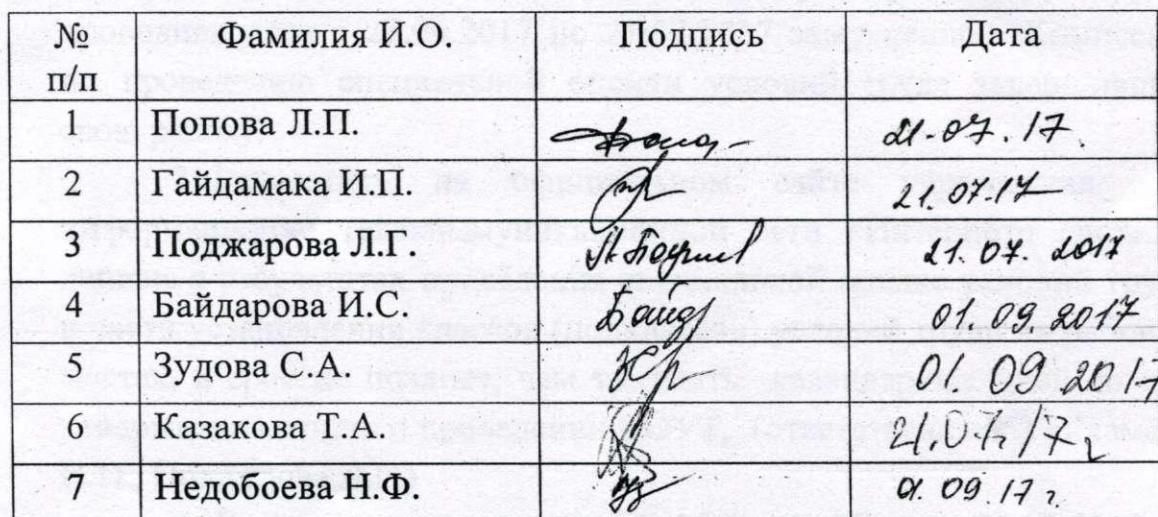 № п/п Фамилия И.О. Подпись Дата
1 Попова Л.П. 21.07.17
2 Гайдамака И.П. 21.07.17
3 Поджарова Л.Г. 21.07.2017
4 Байдарова И.С. Байд 01.09.2017
5 Зудова С.А. 01.09.2017
6 Казакова Т.А. 21.07.17г
7 Недобоева Н.Ф. 01.09.17г